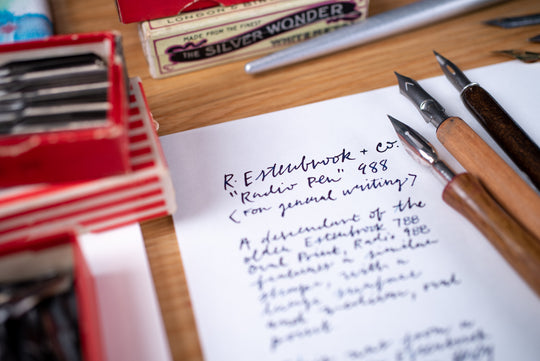 LONDON & BIR
MADE FROM THE FINEST
THE SILVER WONDER
WHITE
R. Esterbrook + Co.
"Radio Pen" 988
(For general writing)
A descendant of the
older Esterbrook 788
Oval Point, Radio 988
features a similar
shape, with a
large surface
and medium, oval
point.